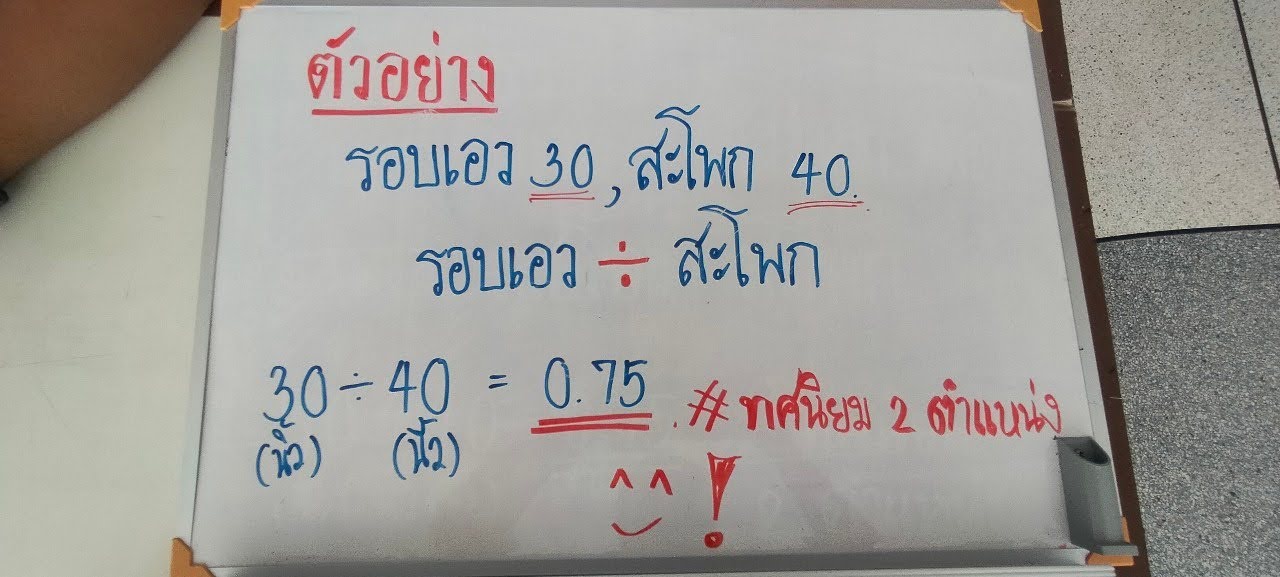 ตัวอย่าง
รอบเอว 30, สะโพก 40.
รอบเอว ÷ สะโพก
30 ÷ 40 = 0.75. # ทศนิยม 2 ตำแหน่ง
(นิ้ว) (นิ้ว)
!